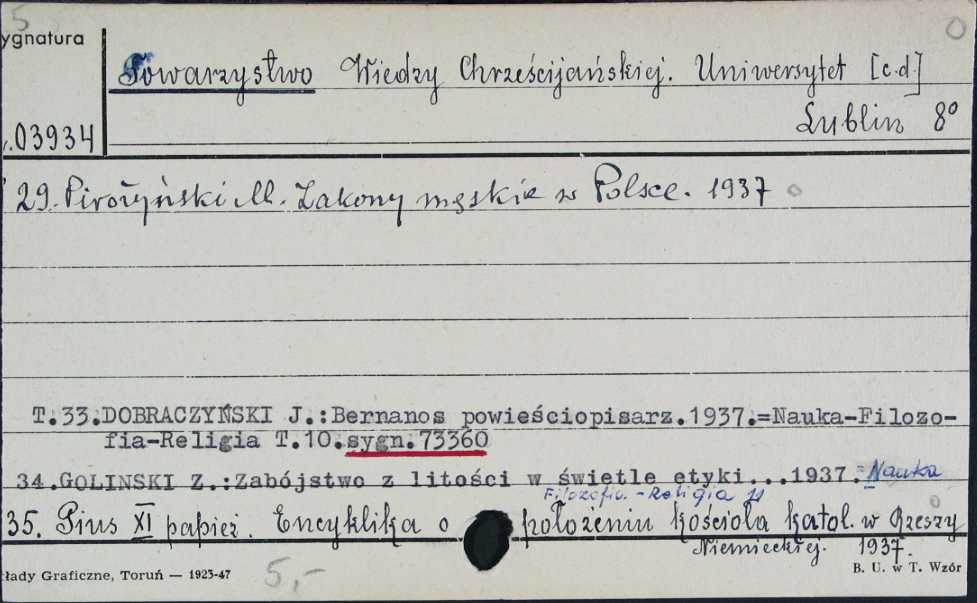 5
ygnatura
0
Towarzystwo Wiedzy Chrześcijańskiej. Uniwersytet [c.d.]
Lublin 8°
.03934
29. Pirożyński M. Zakony męskie w Polsce. 1937
T.33.DOBRACZYŃSKI J.:Bernanos powieściopisarz.1937.=Nauka-Filozo-
fia-Religia T.10.sygn.73360
34.GOLINSKI Z.:Zabójstwo z litości w świetle etyki...1937.=Nauka
Filozofia.-Religia 11
35. Pius XI papież. Encyklika o położeniu Kościoła katol. w Rzeszy
Niemieckiej. 1937.
kłady Graficzne, Toruń — 1925-47
5,-
B. U. w T. Wzór